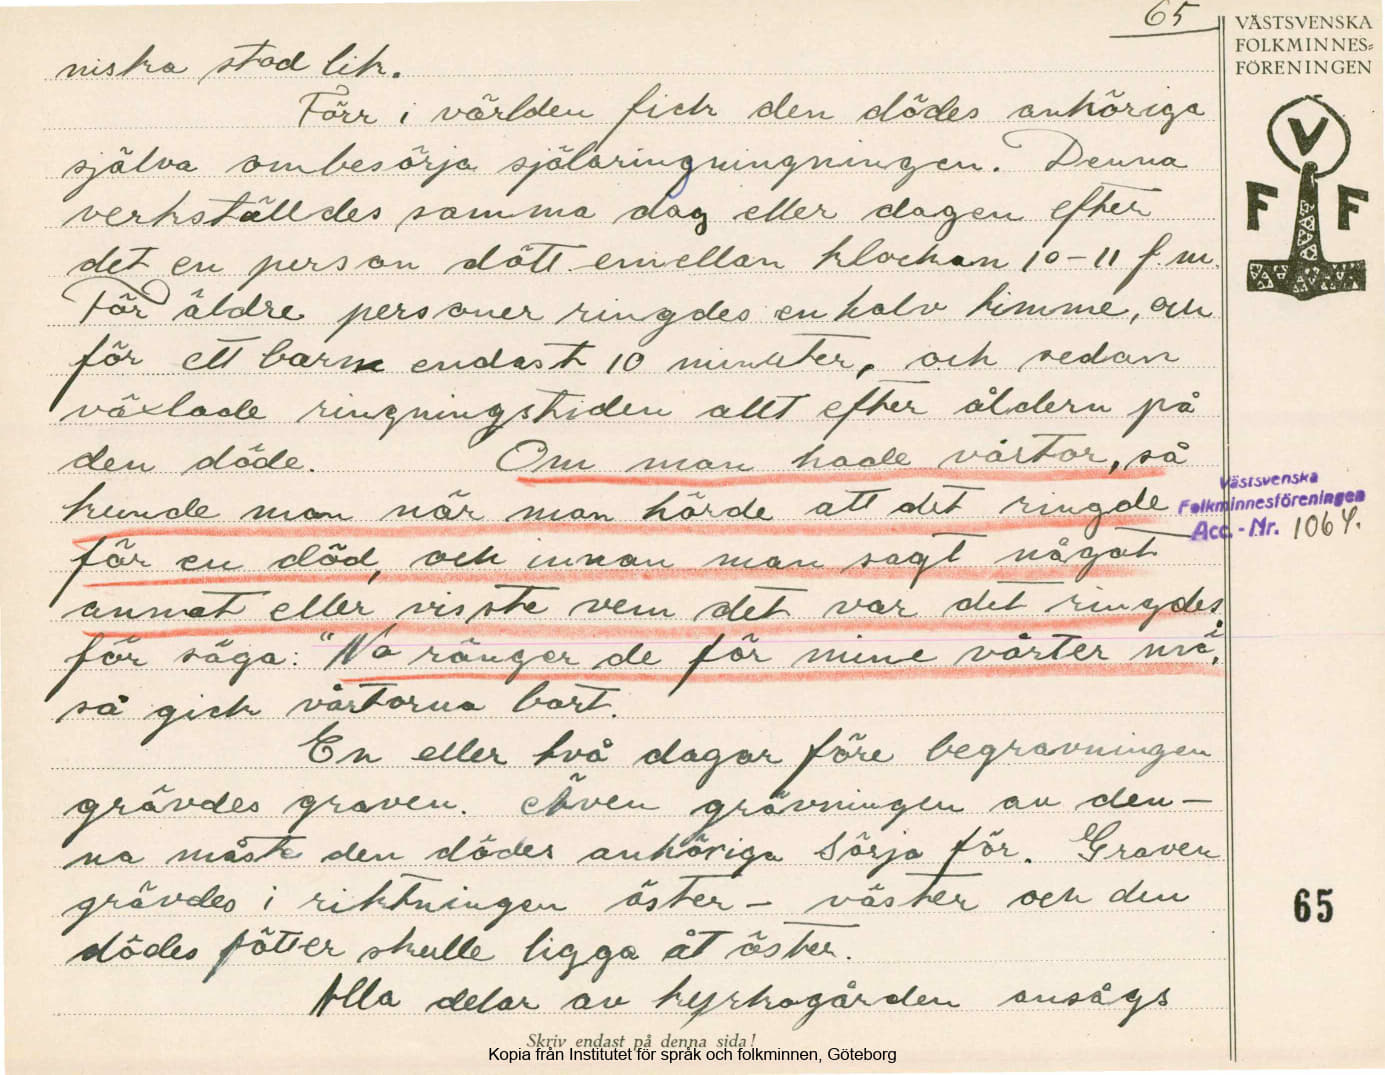 65
VÄSTSVENSKA
FOLKMINNES=
FÖRENINGEN
niska stod lik.
Förr i världen fick den dödes anhöriga
själva ombesörja själaringningningen. Denna
verkställdes samma dag eller dagen efter
det en person dött emellan klockan 10-11 f.m.
För äldre personer ringdes en halv timme, om
för ett barn endast 10 minuter, och sedan
växlade ringningstiden allt efter åldern på
den döde. Om man hade vårtor, så
kunde man när man hörde att det ringde
för en död, och innan man sagt något
annat eller visste vem det var det ringdes
för säga: "Na ränger de för mine vårter nu,
så gick vårtorna bort.
En eller två dagar före begravningen
grävdes graven. Även grävningen av den-
na måste den dödes anhöriga sörja för. Graven
grävdes i riktningen öster - väster och den
dödes fötter skulle ligga åt öster.
Alla delar av kyrkogården ansågs
V
F F
Västsvenska
Folkminnesföreningen
Acc.-Nr. 1064.
65
Skriv endast på denna sida!
Kopia från Institutet för språk och folkminnen, Göteborg